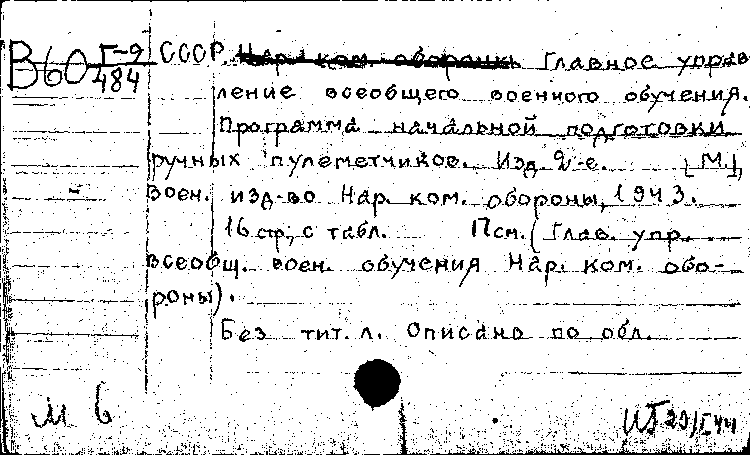 В60 Г-9
484
СССР. Нар. ком. обороны. Главное управ
ление всеобщего военного обучения.
Программа начальной подготовки
ручных пулеметчиков. Изд. 2-е. [М.],
Воен. изд-во Нар. ком. обороны, 1943.
16 стр., с табл. Псм. (Глав. упр.
всеобщ. воен. обучения Нар. ком. обо-
роны).
Без тит. л. Описано по обл.
М 6